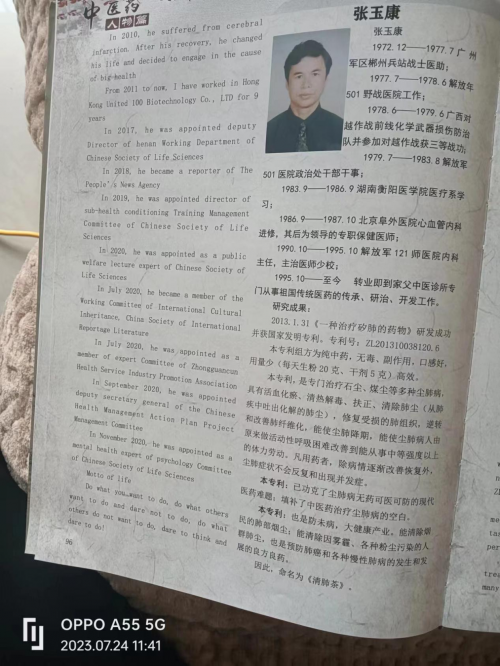 中医药
人物篇
In 2010, he suffered from cerebral
infarction. After his recovery, he changed
his life and decided to engage in the cause
of big health
From 2011 to now, I have worked in Hong
Kong United 100 Biotechnology Co., LTD for 9
years
In 2017, he was appointed deputy
Director of henan Working Department of
Chinese Society of Life Sciences
In 2018, he became a reporter of The
People's News Agency
In 2019, he was appointed director of
sub-health conditioning Training Management
Committee of Chinese Society of Life
Sciences
In 2020, he was appointed as a public
welfare lecture expert of Chinese Society of
Life Sciences
In July 2020, he became a member of the
Working Committee of International Cultural
Inheritance, China Society of International
Reportage Literature
In July 2020, he was appointed as a
member of expert Committee of Zhongguancun
Health Service Industry Promotion Association
In September 2020, he was appointed
deputy secretary general of the Chinese
Health Management Action Plan Project
Management Committee
In November 2020, he was appointed as a
mental health expert of psychology Committee
of Chinese Society of Life Sciences
Motto of life
Do what you want to do, do what others
want to do and dare not to do, do what
others do not want to do, dare to think and
dare to do!
96
张玉康
张玉康
1972.12—1977.7 广州
军区郴州兵站战士医助;
1977.7—1978.6 解放军
501 野战医院工作;
1978.6—1979.6 广西对
越作战前线化学武器损伤防治
队并参加对越作战获三等战功;
1979.7—1983.8 解放军
501 医院政治处干部干事;
1983.9—1986.9 湖南衡阳医学院医疗系学
习;
1986.9—1987.10 北京阜外医院心血管内科
进修，其后为领导的专职保健医师;
1990.10—1995.10 解放军 121 师医院内科
主任，主治医师少校;
1995.10—至今 转业即到家父中医诊所专
门从事祖国传统医药的传承、研治、开发工作。
研究成果:
2013.1.31《一种治疗矽肺的药物》研发成功
并获国家发明专利。专利号: ZL201310038120.6
本专利组方为纯中药，无毒、副作用，口感好，
用量少（每天生粉 20 克、干剂 5 克）高效。
本专利，是专门治疗石尘、煤尘等多种尘肺病，
具有活血化瘀、清热解毒、扶正、清除肺尘（从肺
疾中吐出化解的肺尘），修复受损的肺组织，逆转
和改善肺纤维化，能使尘肺降期，能使尘肺病人由
原来做活动性呼吸困难改善到能从事中等强度以上
的体力劳动。凡用药者，除病情逐渐改善恢复外，
尘肺症状不会反复和出现并发症。
本专利: 已功克了尘肺病无药可医可防的现代
医药难题; 填补了中医药治疗尘肺病的空白。
本专利: 也是防未病，大健康产业。能清除烟
民的肺部烟尘; 能清除因雾霾、各种粉尘污染的人
群肺尘。也是预防肺癌和各种慢性肺病的发生和发
展的良方良药。
因此，命名为《清肺茶》。
OPPO A55 5G
2023.07.24 11:41